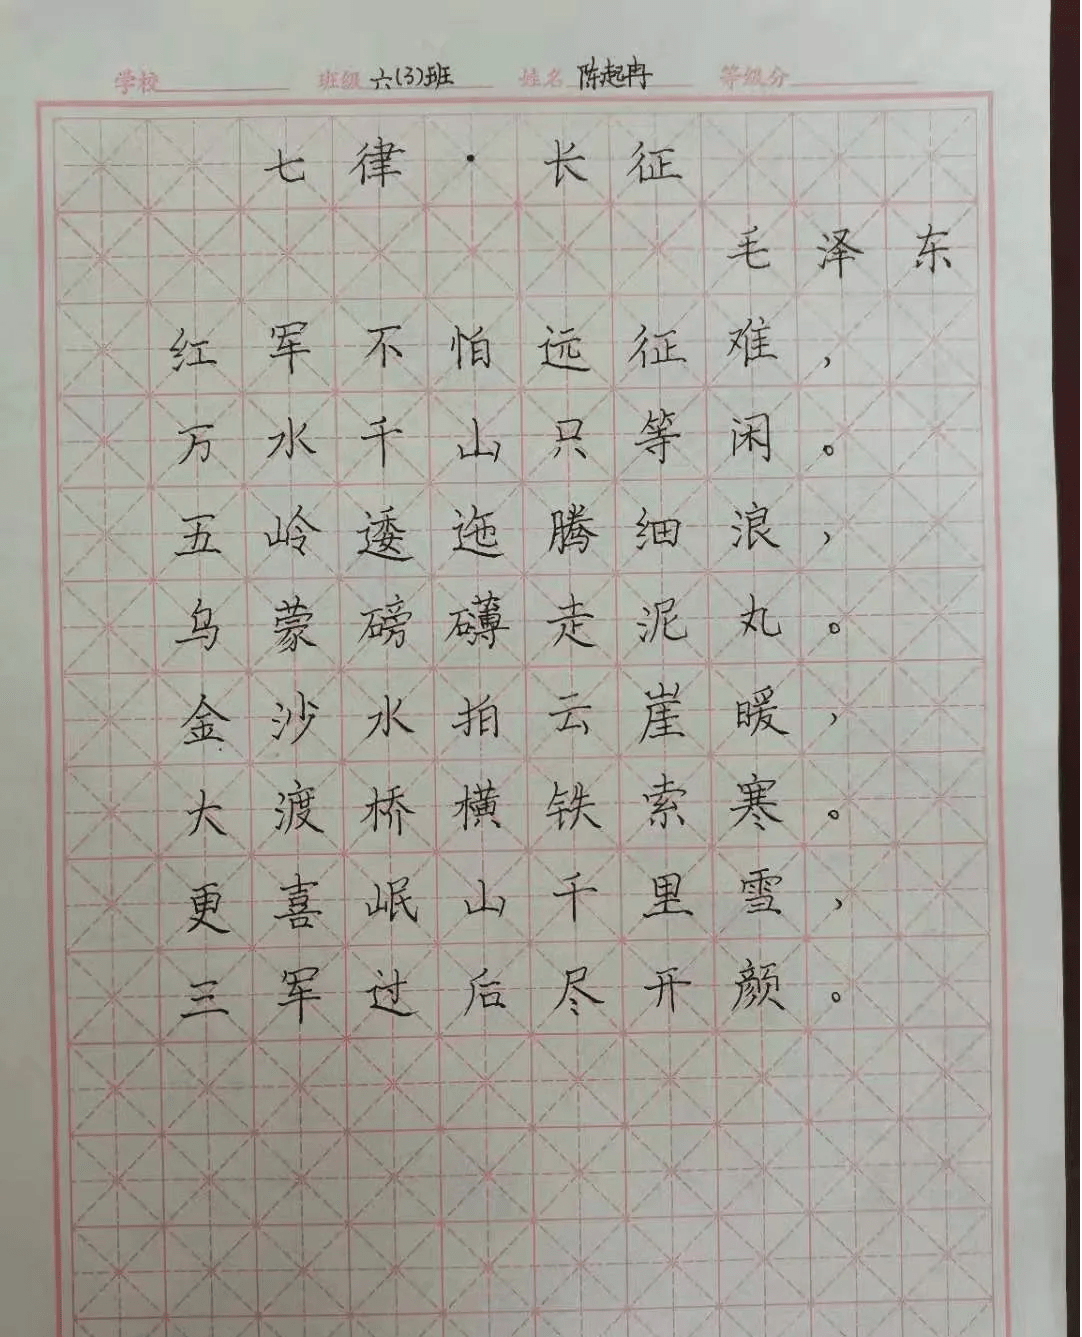 学校 班级 六(3)班 姓名 陈起冉 等级分
七律·长征
毛泽东
红军不怕远征难，
万水千山只等闲。
五岭逶迤腾细浪，
乌蒙磅礴走泥丸。
金沙水拍云崖暖，
大渡桥横铁索寒。
更喜岷山千里雪，
三军过后尽开颜。